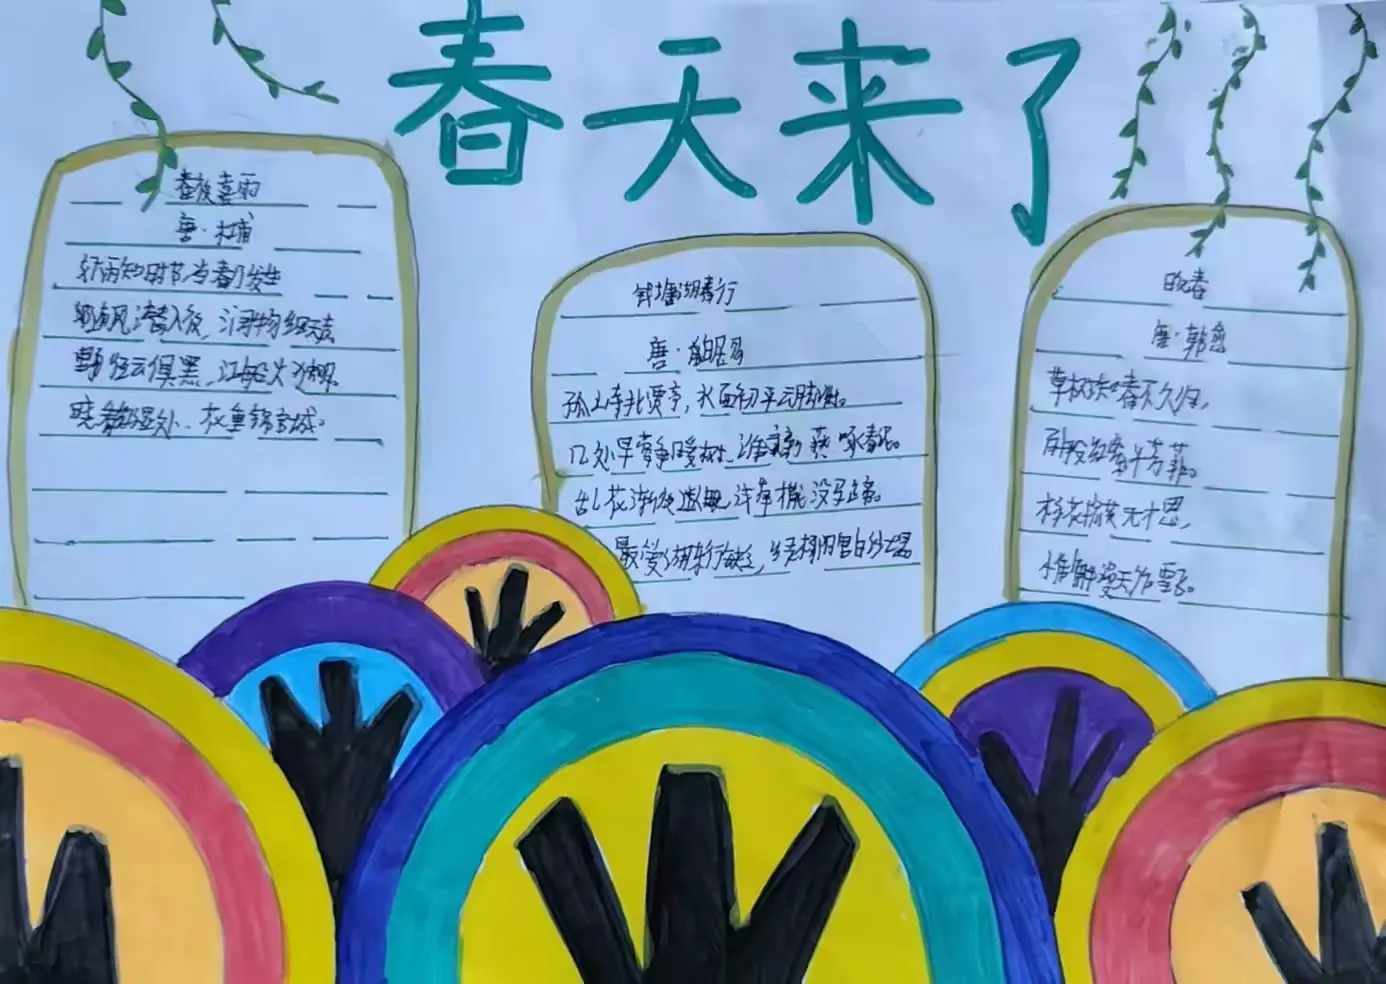 春天来了
春夜喜雨
唐·杜甫
好雨知时节,当春乃发生
随风潜入夜,润物细无声
野径云俱黑,江船火独明
晓看红湿处、花重锦官城。
钱塘湖春行
唐·白居易
孤山寺北贾亭,水面初平云脚低。
几处早莺争暖树,谁家新燕啄春泥。
乱花渐欲迷眼,浅草才能没马蹄。
最爱湖东行不足,绿杨阴里白沙堤
晚春
唐·韩愈
草树知春不久归,
百般红紫斗芳菲。
杨花榆荚无才思,
惟解漫天作雪飞。